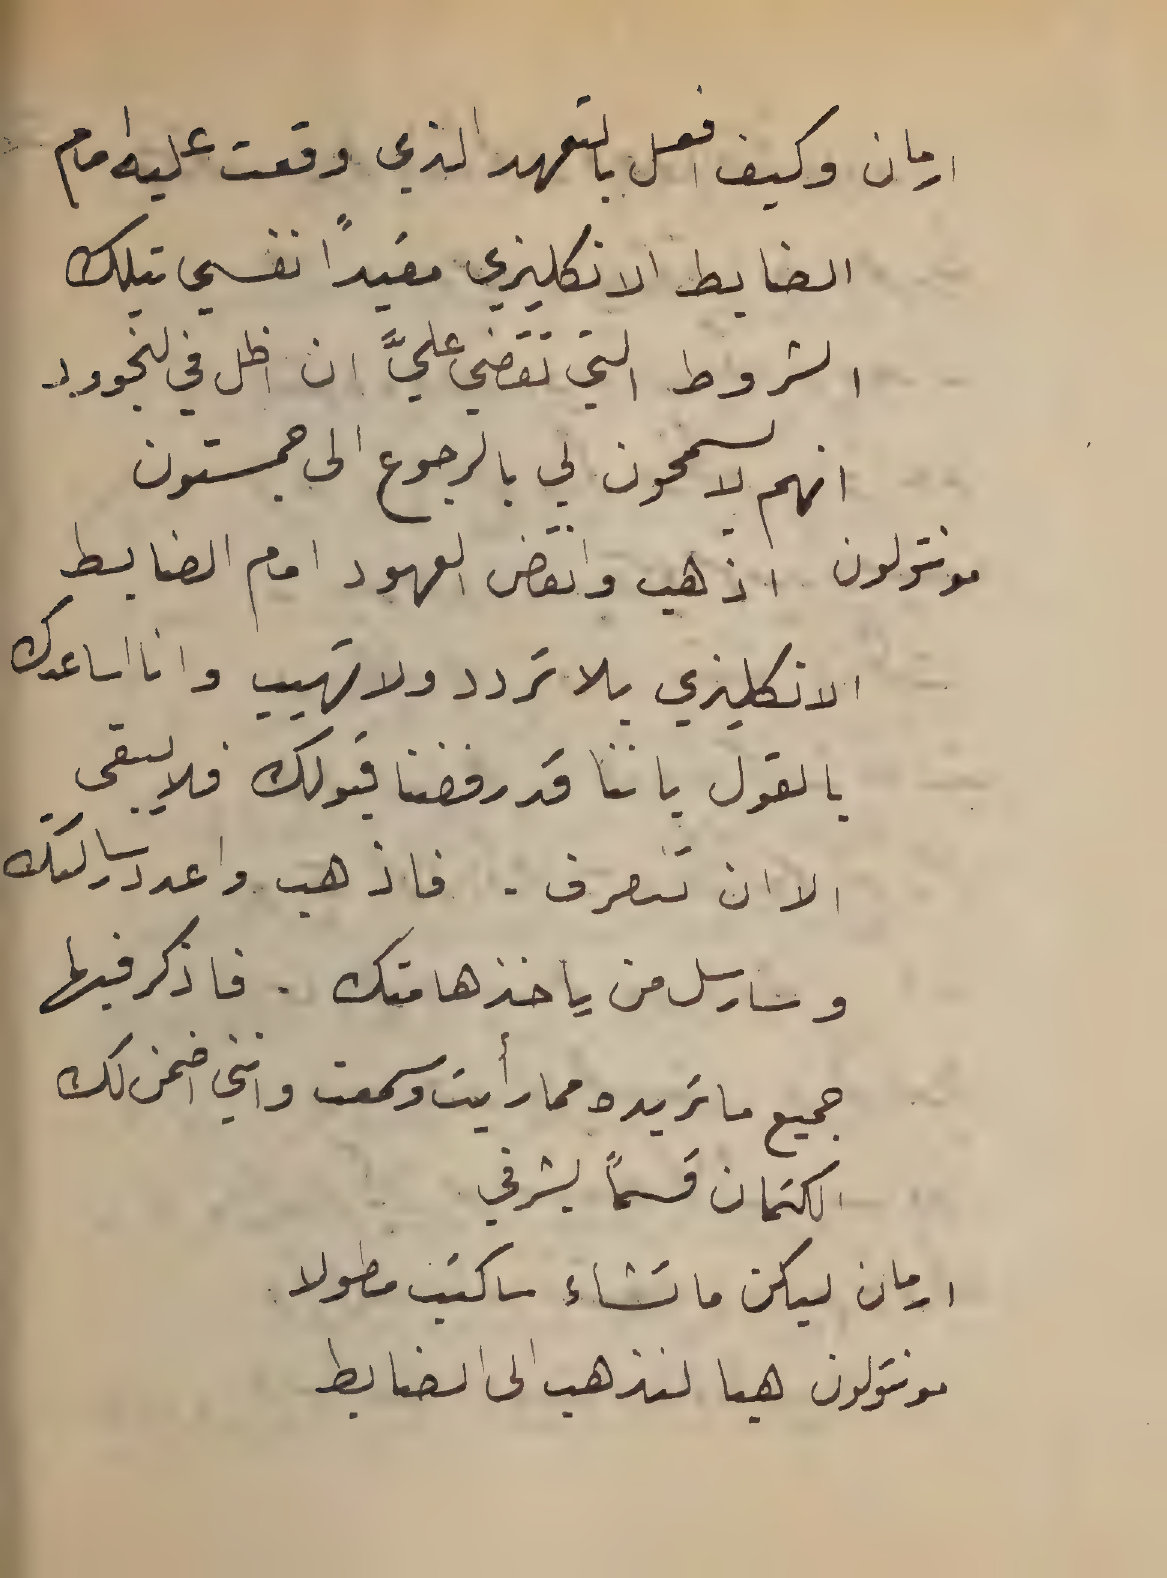 ارمان وكيف افعل بالتعهد الذي وقعت عليه امام
الضابط الانكليزي مقيداً نفسي بتلك
الشروط التي تقضي عليَّ ان اظل في لنجوود
انهم لا يسمحون لي بالرجوع الى جمستون
مونتولون اذهب وانقض العهود امام الضابط
الانكليزي بلا تردد ولا تهيب وانا اساعدك
بالقول باننا قد رفضنا قبولك فلا يبقى
الا ان تنصرف . فاذهب واعدد رسالتك
وسارسل من ياخذها منك . فاذكر فيها
جميع ما تريده مما رأيت وسمعت وانني اضمن لك
الكتمان قسماً بشرفي
ارمان ليكن ما تشاء ساكتب مطولا
مونتولون هيا لنذهب الى الضابط